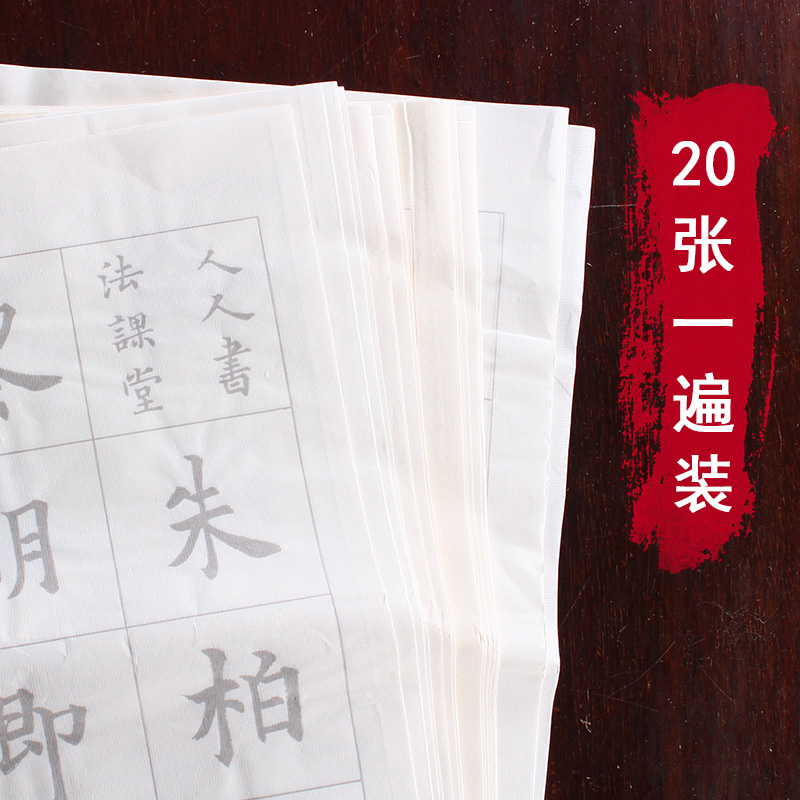 20张一遍装
人人書
法課堂
朱柏
明即